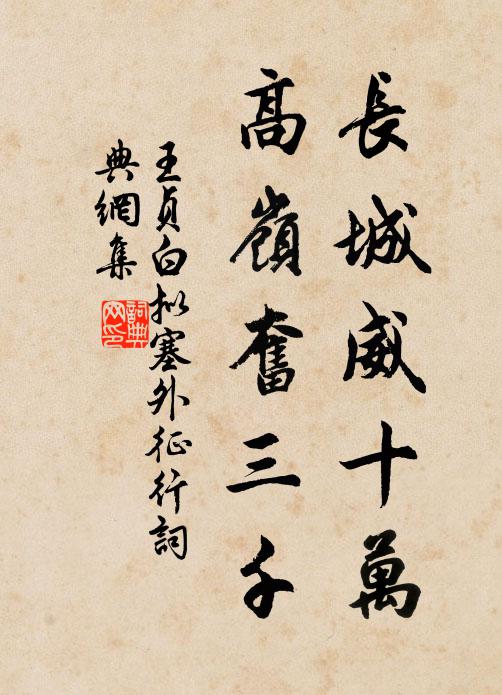 長城威十萬
高嶺奮三千
王貞白拟塞外征行詞
典網集
詞典网印